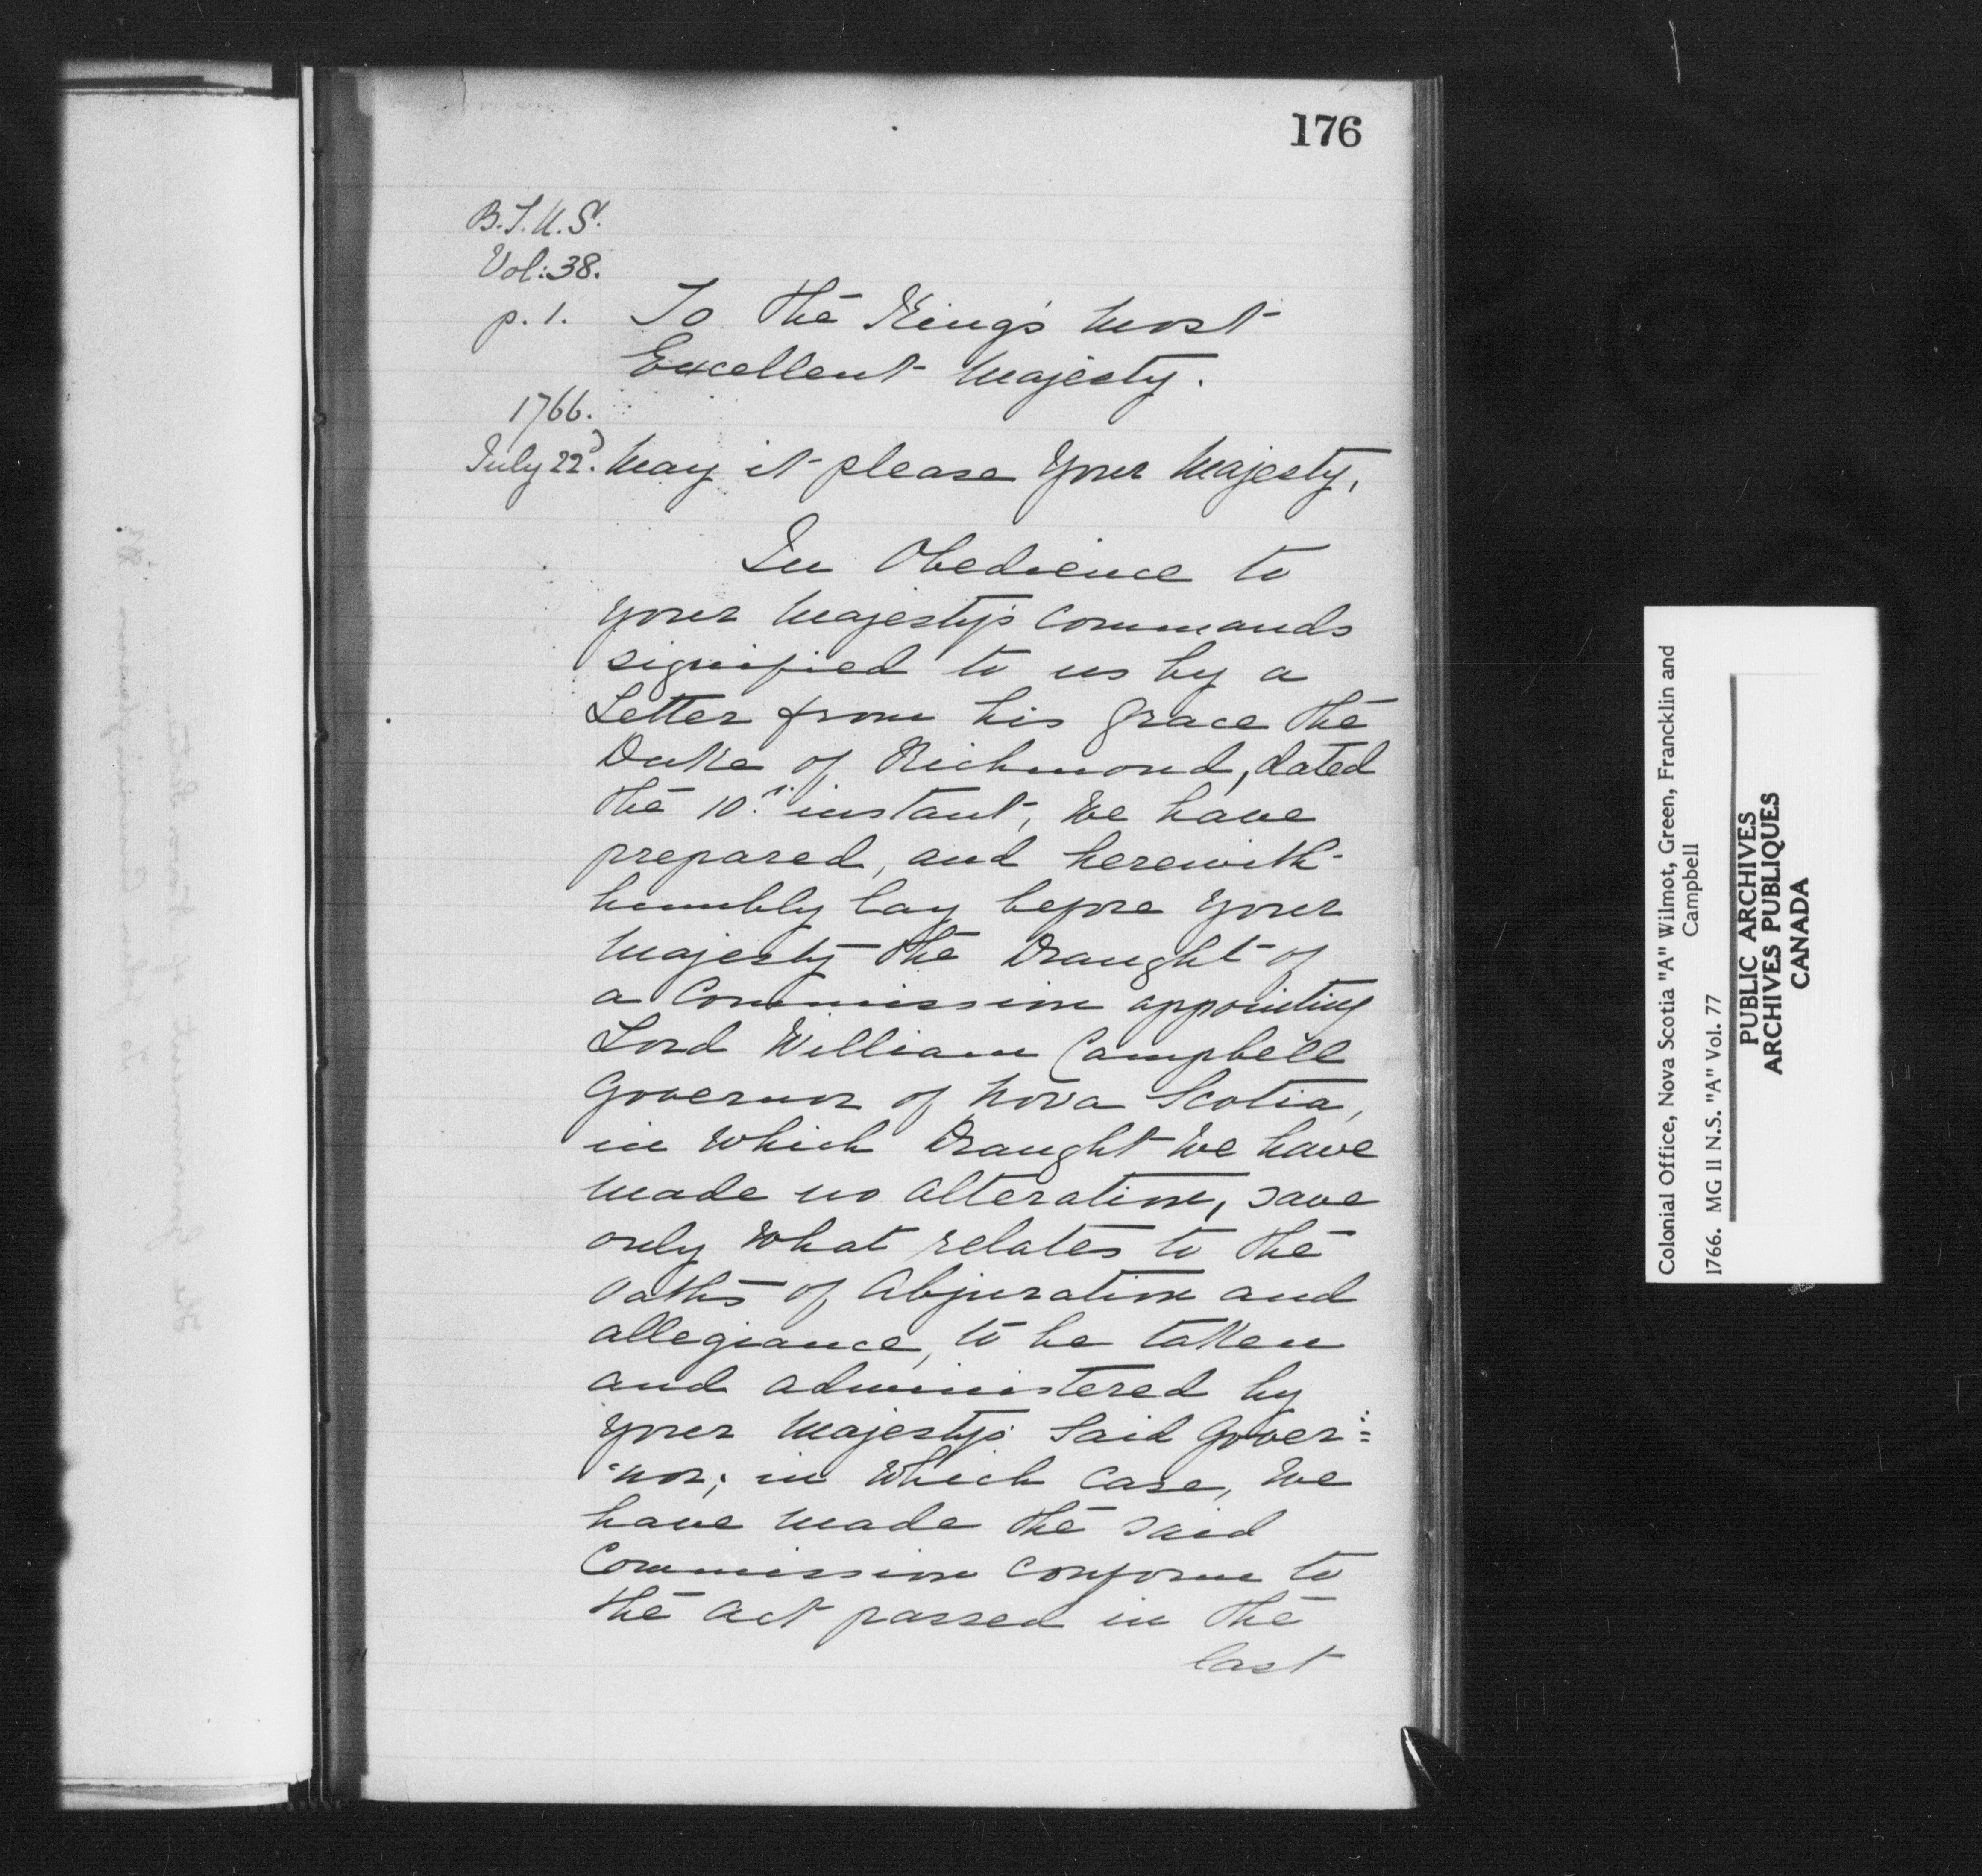 176
B.T.N.S.
Vol: 38.
p. 1.
To the King's Most
Excellent Majesty.
1766.
July 22d.
May it please Your Majesty,
In Obedience to
your Majesty's Commands
signified to us by a
Letter from his Grace the
Duke of Richmond, dated
the 10th instant, We have
prepared, and herewith
humbly lay before Your
Majesty the Draught of
a Commission appointing
Lord William Campbell
Governor of Nova Scotia,
in which Draught We have
made no alteration, save
only what relates to the
Oaths of Abjuration and
allegiance, to be taken
and administered by
Your Majesty's Said Gover=
=nor; in which Case, We
have made the said
Commission conform to
the Act passed in the
last
Colonial Office, Nova Scotia "A" Wilmot, Green, Francklin and
Campbell
1766. MG 11 N.S. "A" Vol. 77
PUBLIC ARCHIVES
ARCHIVES PUBLIQUES
CANADA